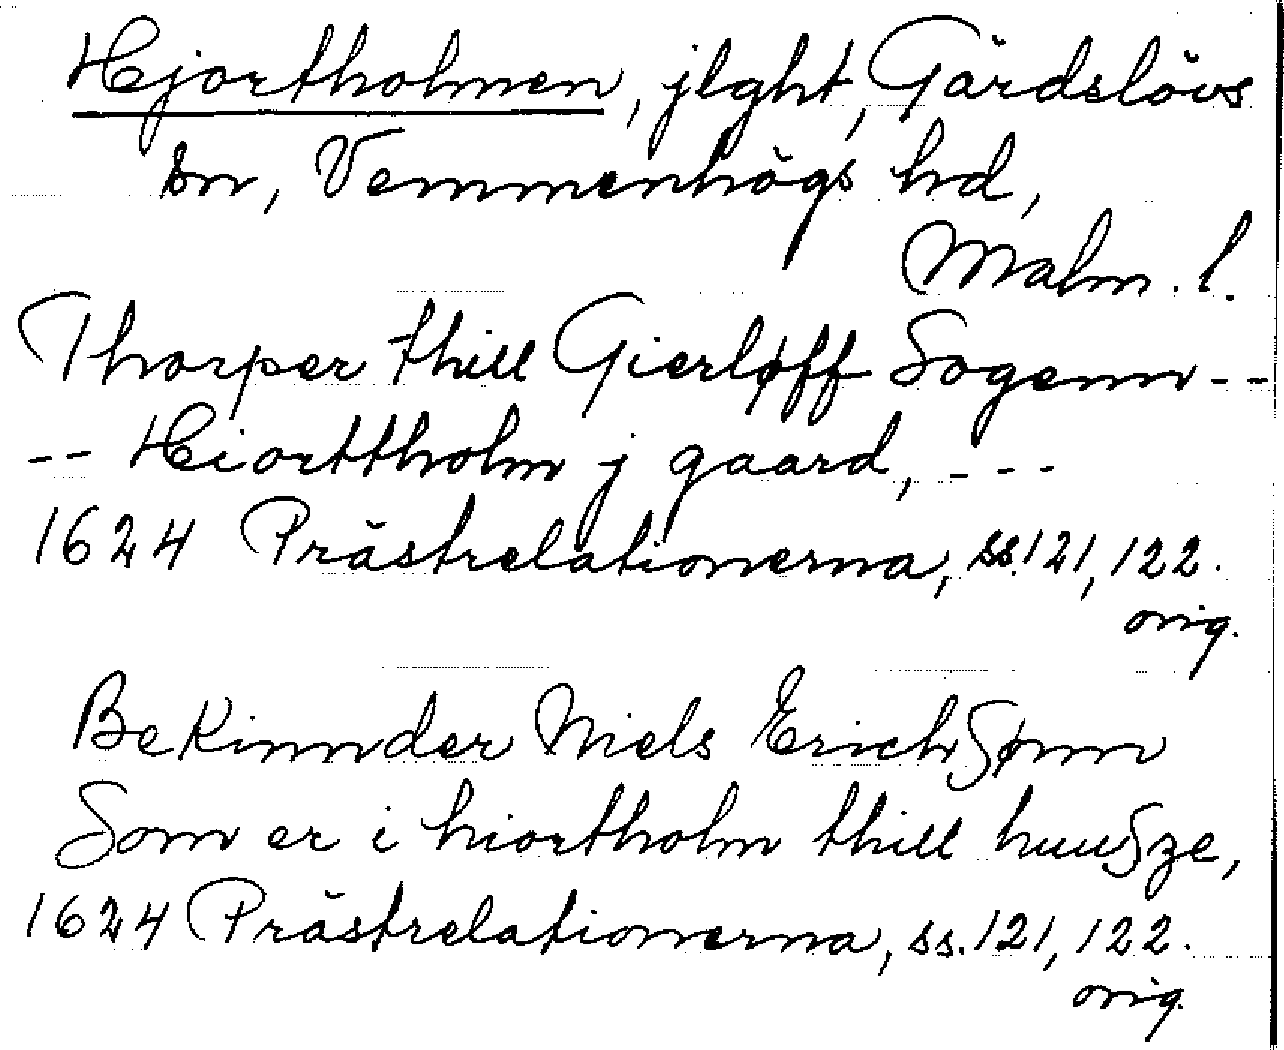 Hjortholmen, jlght, Gärdslövs
sn, Vemmenhögs hd,
Malm. l.
Thorper thill Gierløff Sogenn --
-- Hiorttholm j gaard, ---
1624 Prästrelationerna, ss. 121, 122.
orig.
BeKinnder Niels ErichSønn
Som er i hiortholm thill huuSze,
1624 Prästrelationerna, ss. 121, 122.
orig.